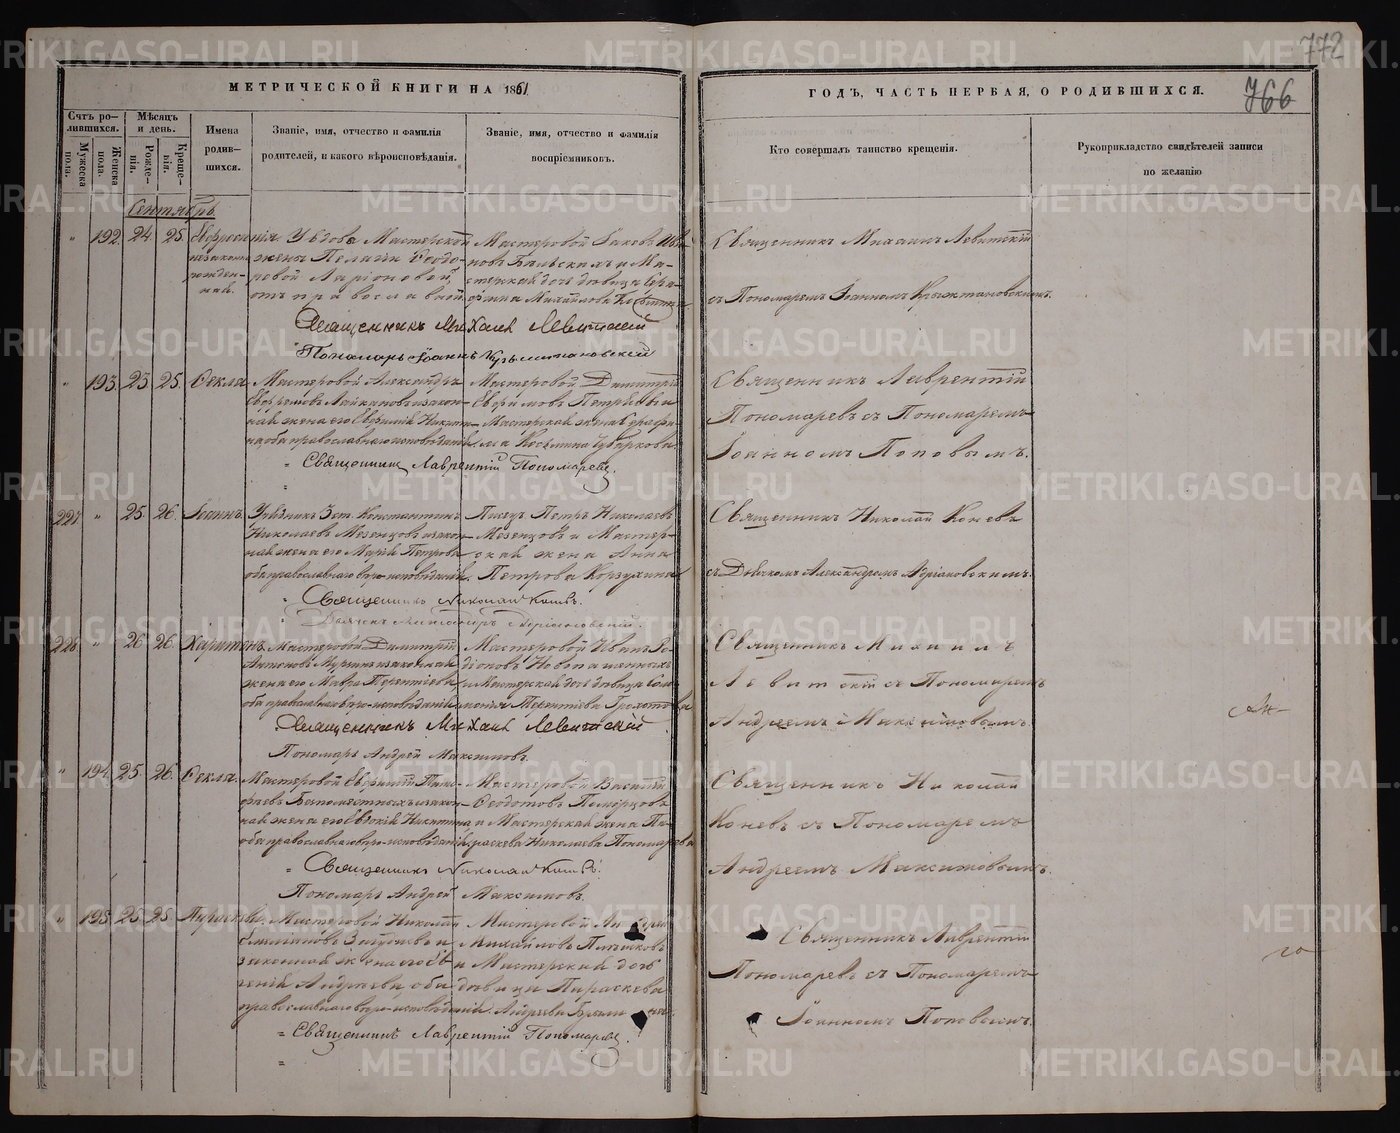 772
766
МЕТРИЧЕСКОЙ КНИГИ НА 1861
ГОДЪ, ЧАСТЬ ПЕРВАЯ, О РОДИВШИХСЯ.
Счтъ ро-
дившихся.
Мужеска
пола.
Женска
пола.
Мѣсяцъ
и день.
Рожде-
нія.
Креще-
нія.
Имена
родив-
шихся.
Званіе, имя, отчество и фамилія
родителей, и какого вѣроисповѣданія.
Званіе, имя, отчество и фамилія
воспріемниковъ.
Кто совершалъ таинство крещенія.
Рукоприкладство свидѣтелей записи
по желанію
Сентябрь
192. 24. 25.
незаконно
рожден-
ная.
Вдова Мастерской
жены Пелагія Ѳеодо-
ровой Ларіоновой,
православной
Мастеровой Іаковъ Ива-
новъ Бѣльскихъ и Ма-
стерская дочь дѣвица Сера-
фима Михайлова
Священникъ Михаилъ Левитскій
съ Пономаремъ Іоанномъ Крыжтановскимъ.
Священникъ Михаилъ Левитскій
Пономарь Іоаннъ
193. 23. 25. Ѳекла
Мастеровой Александръ
ная жена его Евфимія Никити-
на оба православнаго исповѣданія
Мастеровой Димитрій
Ефимовъ
Мастерская жена Серафи-
ма Козьмина
Священникъ Лаврентій
Пономаревъ съ Пономаремъ
Іоанномъ Поповымъ.
Священникъ Лаврентій Пономаревъ.
227 25. 26. Іоаннъ.
Константинъ
Николаевъ Мезенцовъ и закон-
ная жена его Марія Петрова
оба православнаго вѣроисповѣданія.
Писецъ Петръ Николаевъ
Мезенцовъ и Мастер-
ская жена Анна
Петрова Корзухина
Священникъ Николай Коневъ
съ Дьячкомъ Александромъ Адріановскимъ.
Священникъ Николай Коневъ.
228 26. 26. Харитонъ.
Мастеровой Димитрій
Антоновъ и законная
жена его Мавра Терентіева
оба православнаго вѣроисповѣданія
Мастеровой Иванъ Ро-
діоновъ Новопашенныхъ
и Мастерская дочь дѣвица Соло-
монія Терентіева
Священникъ Михаилъ
Левитскій съ Пономаремъ
Андреемъ Максимовымъ
Священникъ Михаилъ Левитскій
Пономарь Андрей Максимовъ.
194. 25. 26. Ѳекла.
Мастеровой Евфимій Тимо-
феевъ Бѣломѣстныхъ и закон-
ная жена его Евдокія Никитина
оба православнаго вѣроисповѣданія
Мастеровой Василій
Ѳеодотовъ Поморцовъ
и Мастерская жена Па-
раскева Николаева Пономарева
Священникъ Николай
Коневъ съ Пономаремъ
Андреемъ Максимовымъ.
Священникъ Николай Коневъ.
Пономарь Андрей Максимовъ.
195 25. 25. Параскева.
Мастеровой Николай
законная жена его Ев-
генія Андреева оба
православнаго вѣроисповѣданія.
Мастеровой Андрей
Михайловъ
и Мастерская дочь
дѣвица Параскева
Андреева
Священникъ Лаврентій
Пономаревъ съ Пономаремъ
Іоанномъ Поповымъ.
Священникъ Лаврентій Пономаревъ.
METRIKI.GASO-URAL.RU